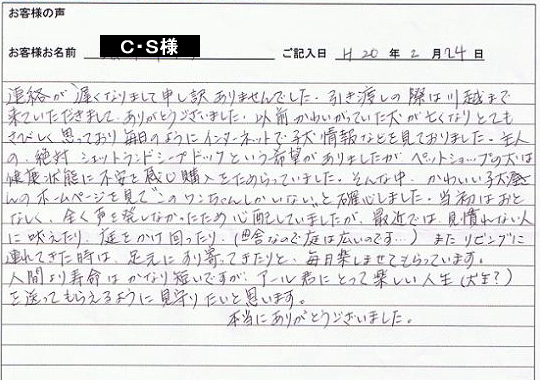 お客様の声
お客様お名前 C・S様 ご記入日 H20年2月24日
連絡が遅くなりまして申し訳ありませんでした。引き渡しの際は川越まで
来ていただきまして、ありがとうございました。以前かわいがっていた犬が亡くなりとても
さびしく思っており毎日のようにインターネットで子犬情報などを見ておりました。主人
の、絶対シェットランドシープドッグという希望がありましたがペットショップの犬は
健康状態に不安を感じ購入をためらっていました。そんな中、かわいい子犬
んのホームページを見て"このワンちゃんしかいない"と確心しました。当初はおと
なしく、全く声を発しなかったため心配していましたが、最近では、見慣れない人
に吠えたり、庭をかけ回ったり、(田舎なので庭は広いです…) またリビングに
連れてきた時は、足元にすり寄ってきたりと、毎日楽しませてもらっています。
人間より寿命はかなり短いですが、アール君にとって楽しい人生(犬生?)
を送ってもらえるように見守りたいと思います。
本当にありがとうございました。